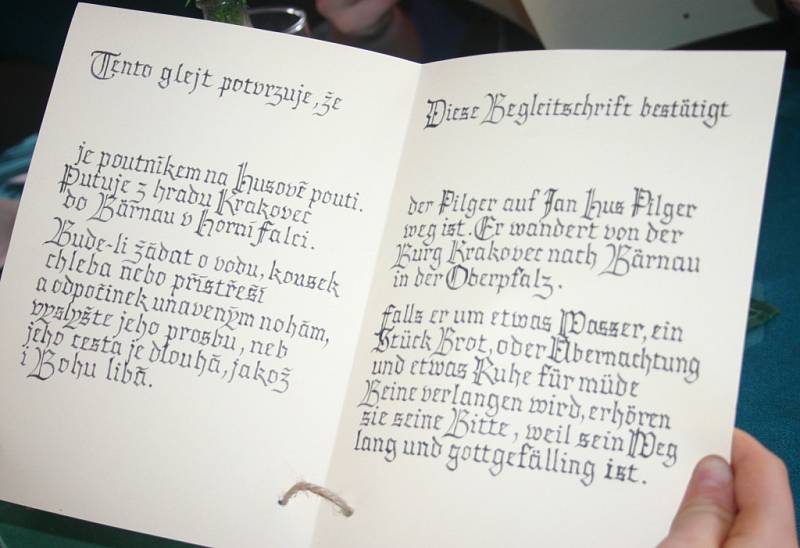 Tento glejt potvrzuje, že
je poutníkem na Husově pouti.
Putuje z hradu Krakovec
do Bärnau v Horní Falci.
Bude-li žádat o vodu, kousek
chleba nebo přístřeší
a odpočinek unaveným nohám,
vyslyšte jeho prosbu, neb
jeho cesta je dlouhá, jakož
i Bohu libá.
Diese Begleitschrift bestätigt
der Pilger auf Jan Hus Pilger
weg ist. Er wandert von der
Burg Krakovec nach Bärnau
in der Oberpfalz.
Falls er um etwas Wasser, ein
Stück Brot, oder Übernachtung
und etwas Ruhe für müde
Beine verlangen wird, erhören
sie seine Bitte, weil sein Weg
lang und gottgefälling ist.